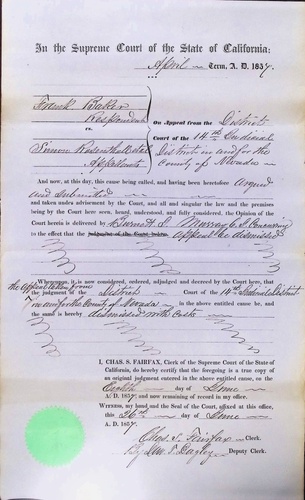 In the Supreme Court of the State of California:
April Term, A. D. 1857
Frank Baker
Respondent
vs.
Simon
Appellants
On Appeal from the District
Court of the 14th Judicial
District in and for the
County of Nevada
And now, at this day, this cause being called, and having been heretofore argued
and submitted
and taken under advisement by the Court, and all and singular the law and the premises
being by the Court here seen, heard, understood, and fully considered, the Opinion of the
Court herein is delivered by Burnett J. Murray C. J. Concurring
to the effect that the judgment of the Court below, appeal be dismissed
Wherefore, it is now considered, ordered, adjudged and decreed by the Court here, that
the appeal taken from
the judgment of the District Court of the 14th Judicial District
in and for the County of Nevada in the above entitled cause be, and
the same is hereby dismissed with Costs
I, CHAS. S. FAIRFAX, Clerk of the Supreme Court of the State of
California, do hereby certify that the foregoing is a true copy of an
original judgment entered in the above entitled cause, on the
day of June
A. D. 1857, and now remaining of record in my office.
Witness, my hand and the Seal of the Court, affixed at this office,
this day of June
A. D. 1857
Chas. S. Fairfax Clerk.
By Deputy Clerk.